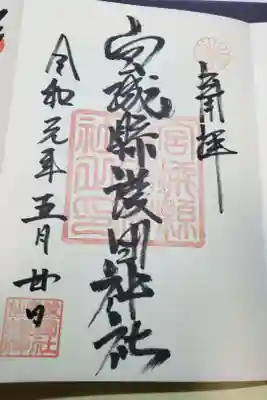 奉拝
宮城縣護国神社
令和元年五月廿日